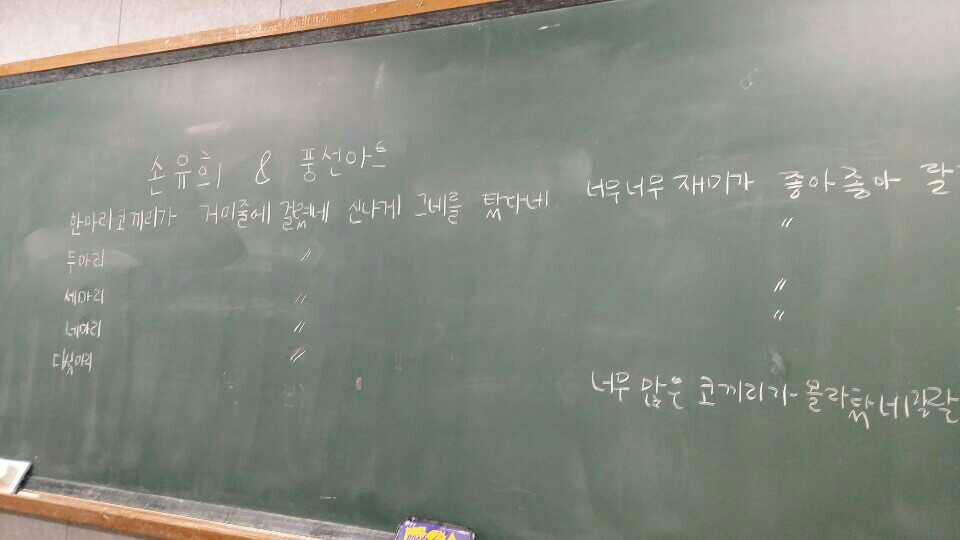 손유희 & 풍선아트
한마리코끼리가 거미줄에 걸렸네 신나게 그네를 탔다네 너무너무 재미가 좋아좋아 랄
두마리 〃 〃
세마리 〃 〃
네마리 〃 〃
다섯마리 〃
너무 많은 코끼리가 올라탔네